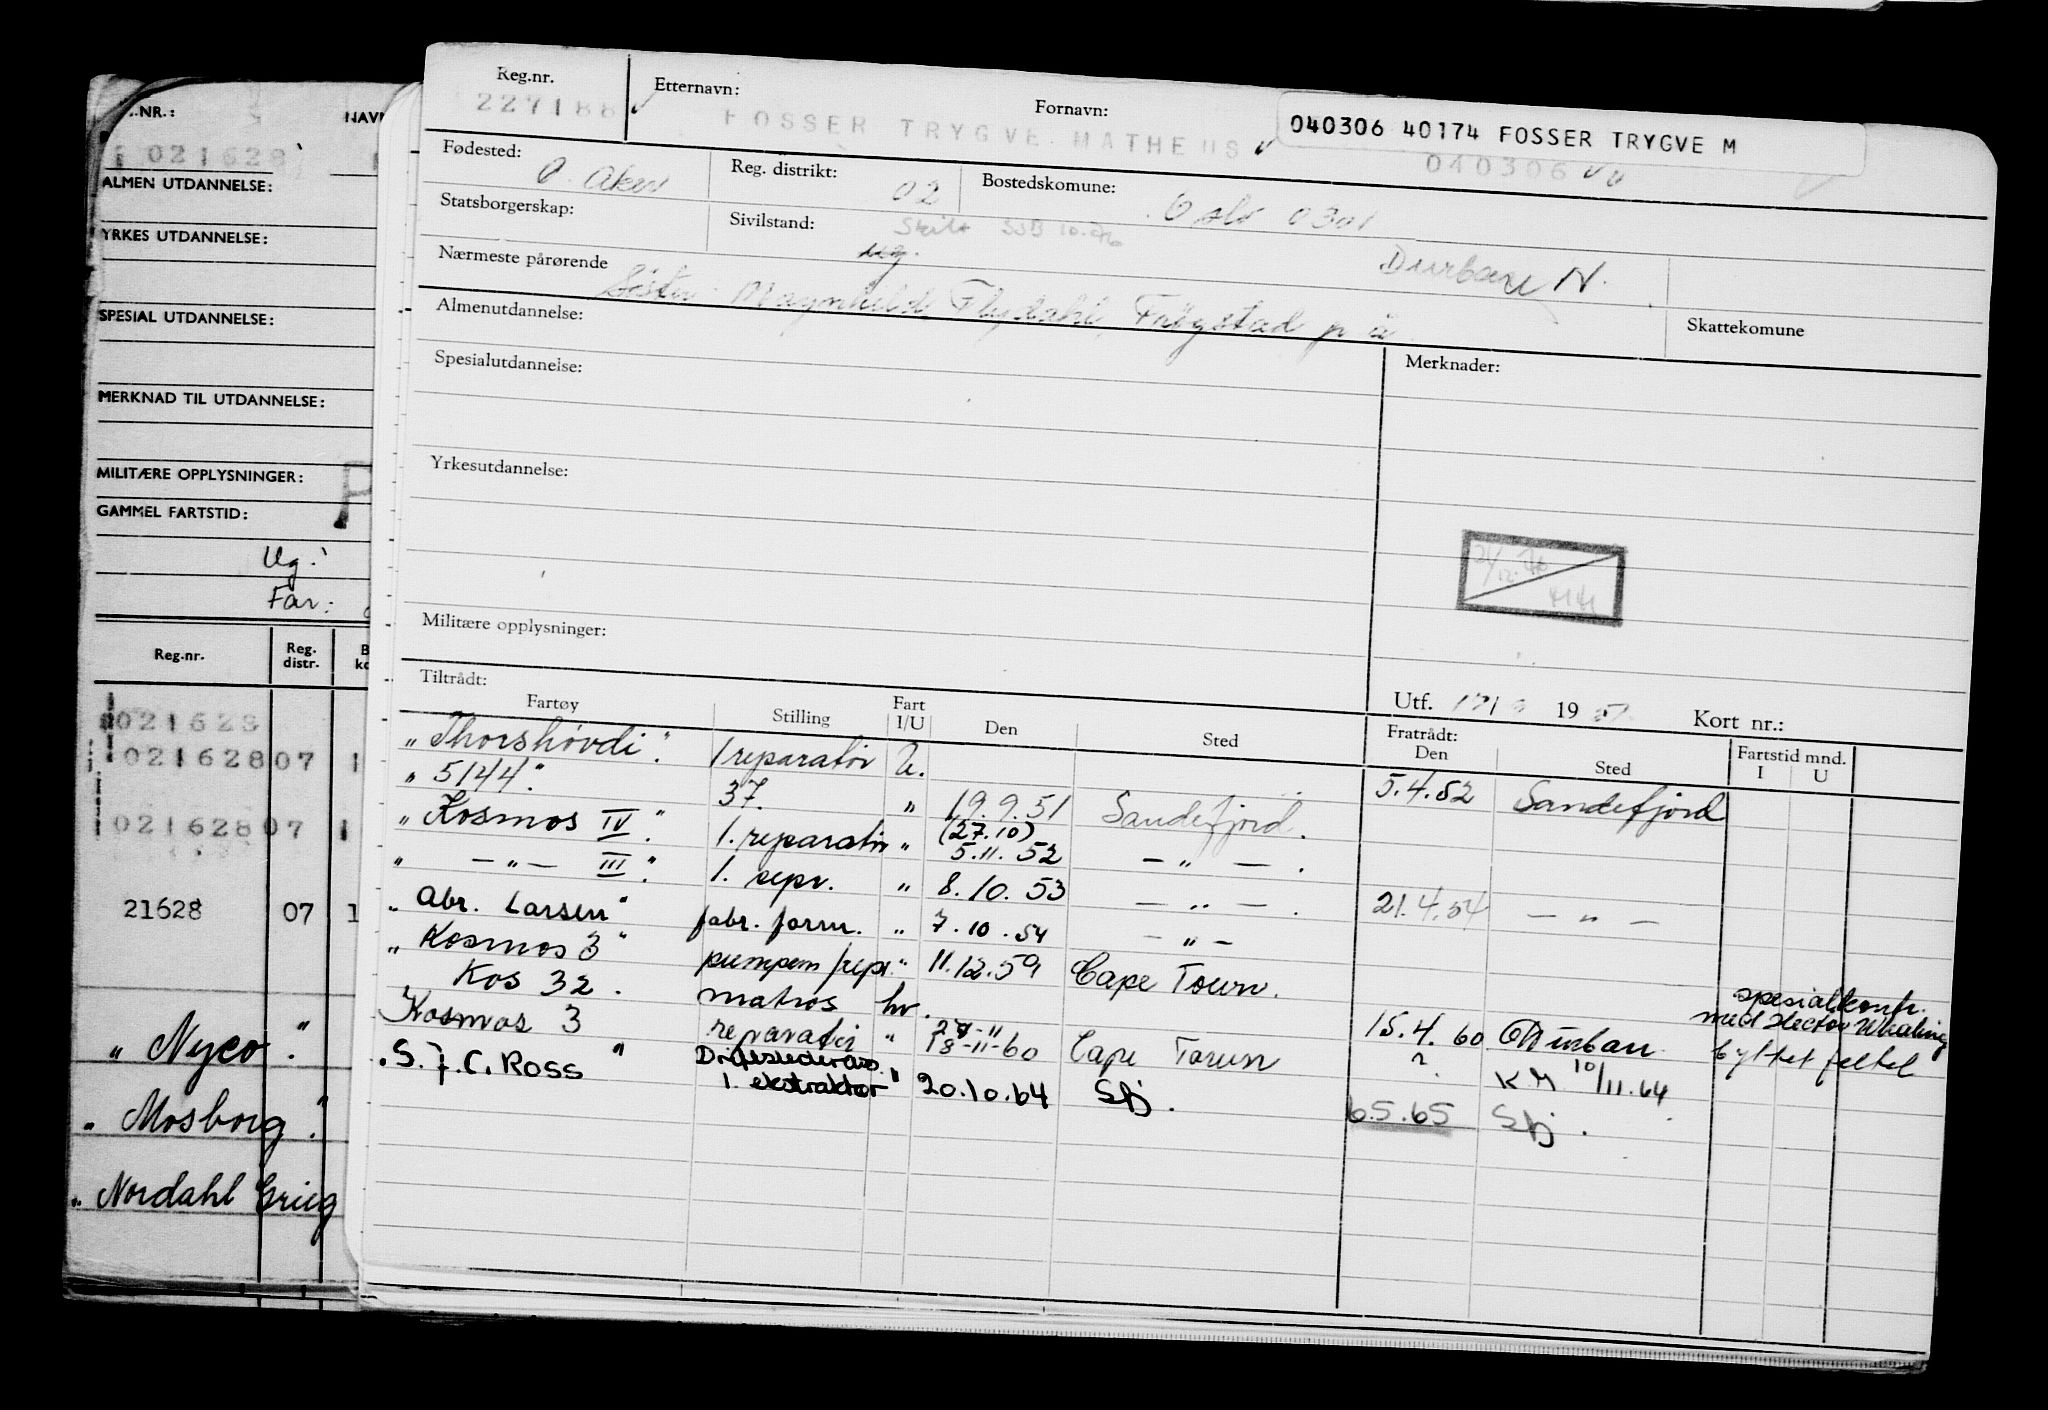 Reg.nr.
227188
Etternavn:
FOSSER TRYGVE MATHEUS
Fornavn:
040306 40174 FOSSER TRYGVE M
040306
Fødested:
Ø. Aker
Reg. distrikt:
02
Bostedskomune:
Oslo 0301
Statsborgerskap:
Sivilstand:
ug.
Skilt SSB 10.76
Nærmeste pårørende
Søster: Flydahl, Frøgstad
Durban N.
Skattekomune
Almenutdannelse:
Spesialutdannelse:
Merknader:
Yrkesutdannelse:
Militære opplysninger:
Utf. 19
Kort nr.:
Tiltrådt:
Fartøy Stilling Fart I/U Den Sted
Fratrådt:
Den Sted
Fartstid mnd.
I U
"Thorshøvdi". 1 reparatør U. 5.4.52 Sandefjord
"5144". 37. " 19.9.51 Sandefjord.
"Kosmos IV". 1. reparatør " (27.10) 5.11.52 — " — .
" — " — III". 1. repr. " 8.10.53 — " — . 21.4.54 — " —
"Abr. Larsen" fabr. form. " 7.10.54 — " —
"Kosmos 3" pumpem/repr. " 11.12.59 Cape Town.
Kos 32. matros hv.
spesialkontr.
med Hector Whaling
Kosmos 3 reparatør " 18-11-60 Cape Town 15.4.60 Durban byttet feltet
? KM 10/11.64
"S. J. C. Ross" Driftslederass.
1. ekstraktør " 20.10.64 Sfj. 6.5.65 Sfj.
.NR.:
021628
NAV
ALMEN UTDANNELSE:
YRKES UTDANNELSE:
SPESIAL UTDANNELSE:
MERKNAD TIL UTDANNELSE:
MILITÆRE OPPLYSNINGER:
GAMMEL FARTSTID:
Ug.
Far:
Reg.nr. Reg. distr.
021628
021628 07 1
021628 07 1
21628 07 1
"Nyco".
"Mosborg".
"Nordahl Grieg